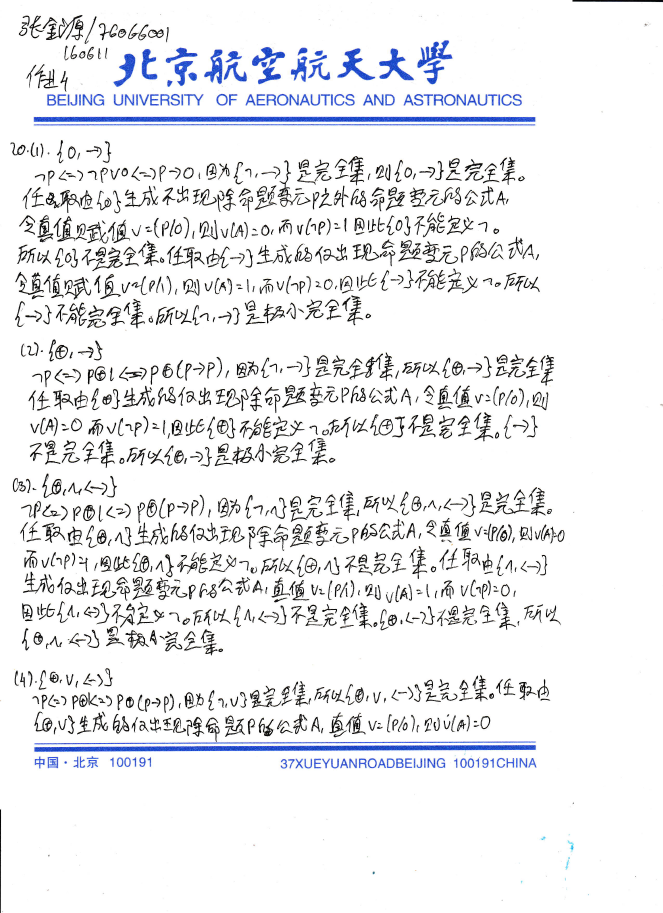 张金源/76066001
160611
作业4
北京航空航天大学
BEIJING UNIVERSITY OF AERONAUTICS AND ASTRONAUTICS
20.(1).{0,→}
¬P<=>¬P∨0<=>P→0,因为{¬,→}是完全集,则{0,→}是完全集。
任取由{0}生成不出现除命题变元P之外的命题变元的公式A,
令真值赋值v=(P/0),则v(A)=0,而v(¬P)=1因此{0}不能定义¬。
所以{0}不是完全集。任取由{→}生成的仅出现命题变元P的公式A,
令真值赋值v=(P/1),则v(A)=1,而v(¬P)=0,因此{→}不能定义¬。所以
{→}不能完全集。所以{¬,→}是极小完全集。
(2).{⊕,→}
¬P<=>P⊕1<=>P⊕(P→P),因为{¬,→}是完全集,所以{⊕,→}是完全集
任取由{⊕}生成的仅出现除命题变元P的公式A,令真值v=(P/0),则
v(A)=0而v(¬P)=1,因此{⊕}不能定义¬。所以{⊕}不是完全集。{→}
不是完全集。所以{⊕,→}是极小完全集。
(3).{⊕,∧,<->}
¬P<=>P⊕1<=>P⊕(P→P),因为{¬,∧}是完全集,所以{⊕,∧,<->}是完全集。
任取由{⊕,∧}生成的仅出现除命题变元P的公式A,令真值v=(P/0),则v(A)=0
而v(¬P)=1,因此{⊕,∧}不能定义¬。所以{⊕,∧}不是完全集。任取由{∧,<->}
生成仅出现命题变元P的公式A,真值v=(P/1),则v(A)=1,而v(¬P)=0,
因此{∧,<->}不能定义¬。所以{∧,<->}不是完全集。{⊕,<->}不是完全集,所以
{⊕,∧,<->}是极小完全集。
(4).{⊕,∨,<->}
¬P<=>P⊕1<=>P⊕(P→P),因为{¬,∨}是完全集,所以{⊕,∨,<->}是完全集。任取由
{⊕,∨}生成的仅出现除命题P的公式A,真值v=(P/0),则v(A)=0
中国·北京 100191 37XUEYUANROADBEIJING 100191CHINA